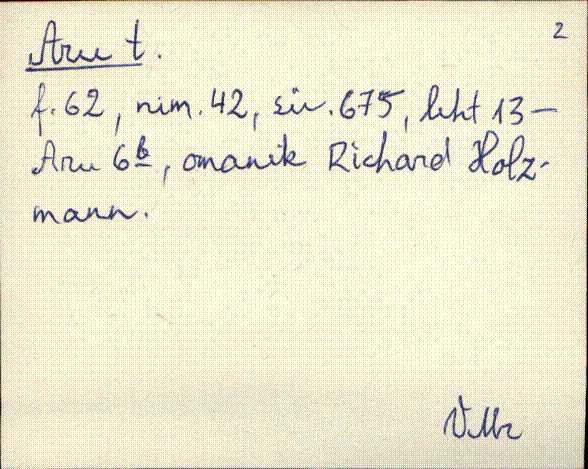 2
Aru t.
f. 62, nim. 42, siv. 675, leht 13 –
Aru 6b, omanik Richard Holz-
mann.